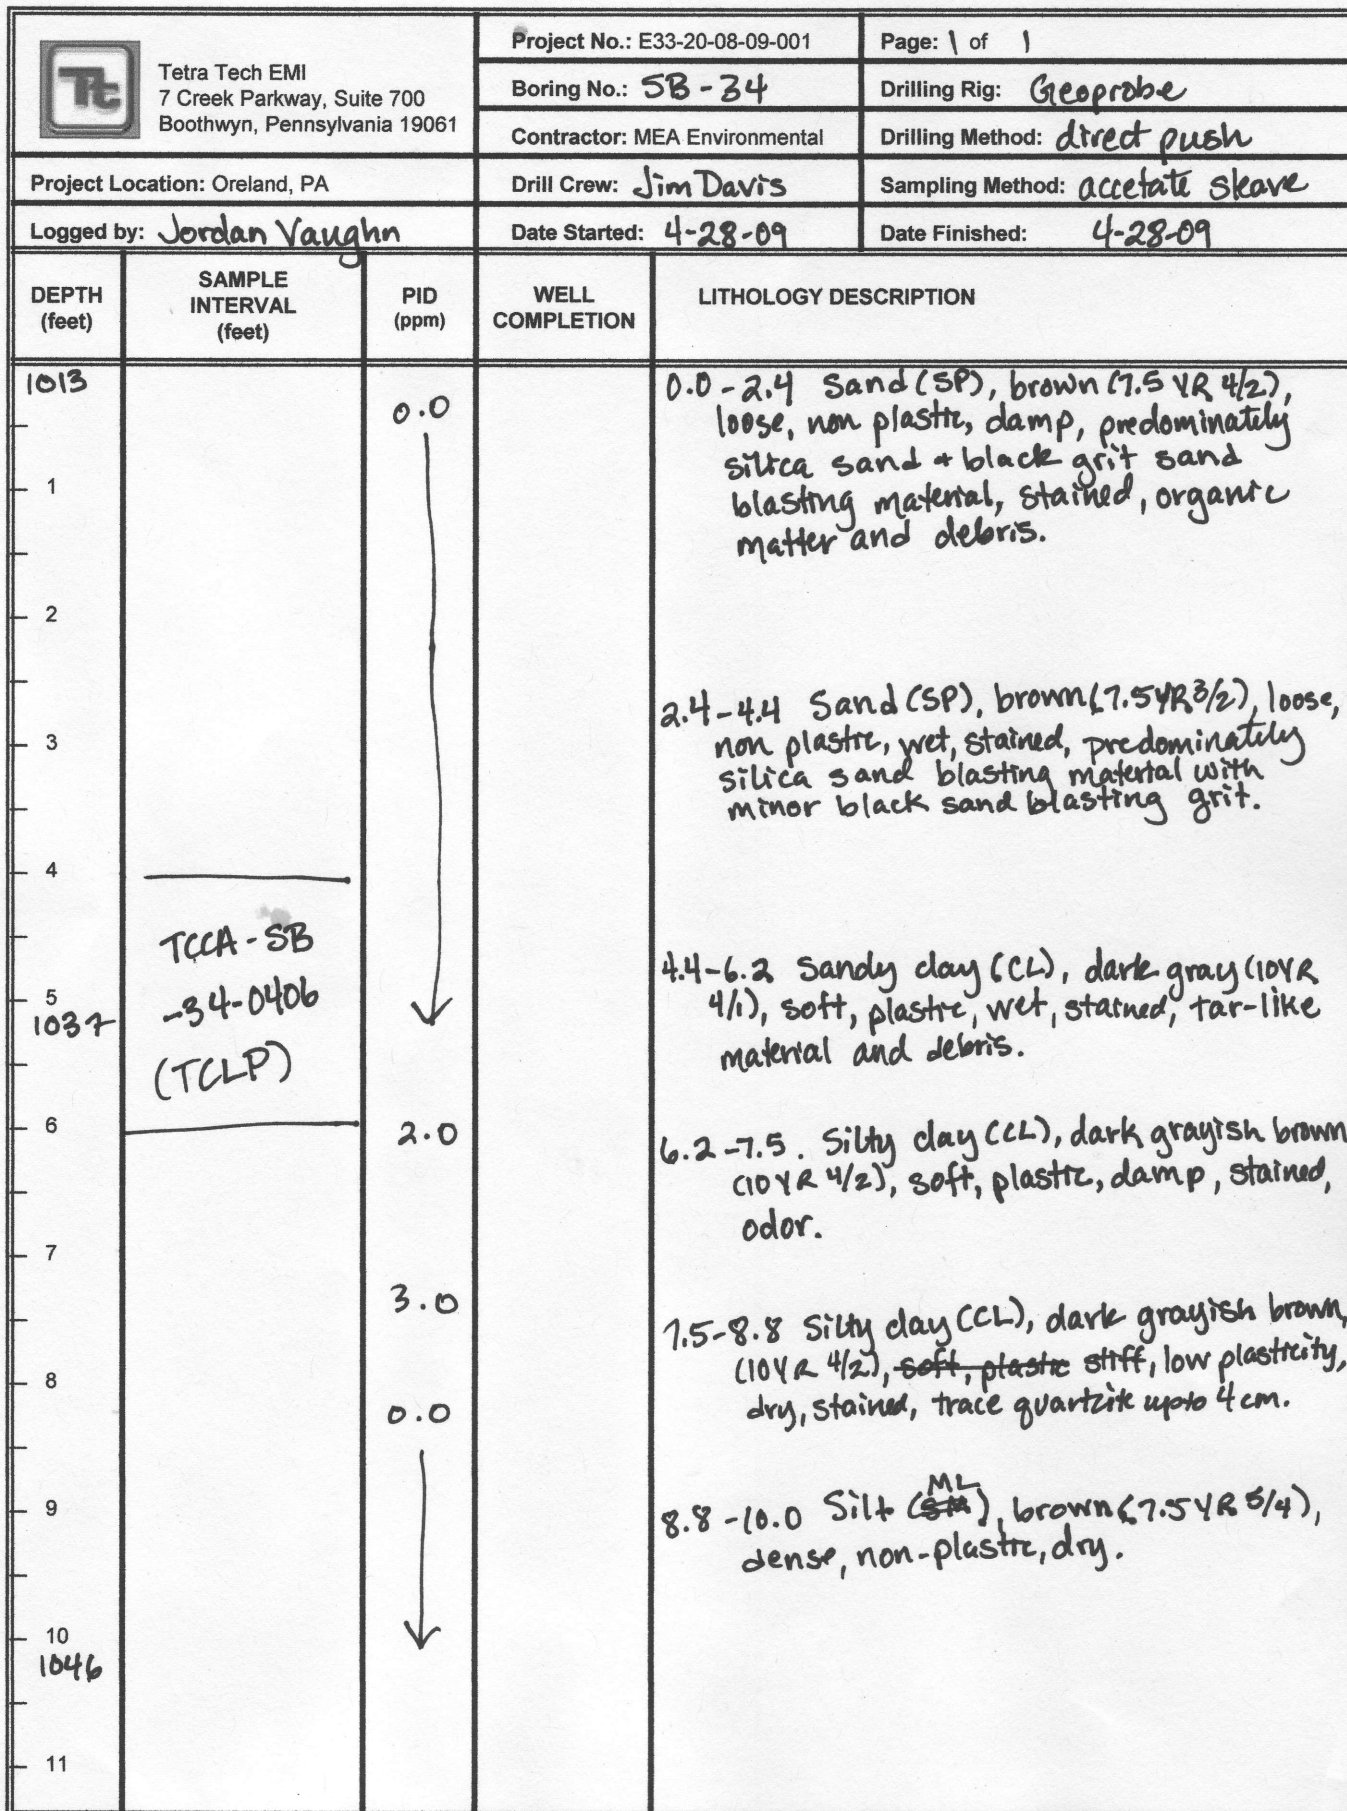 Tt
Tetra Tech EMI
7 Creek Parkway, Suite 700
Boothwyn, Pennsylvania 19061
Project No.: E33-20-08-09-001
Page: 1 of 1
Boring No.: SB-34
Drilling Rig: Geoprobe
Contractor: MEA Environmental
Drilling Method: direct push
Project Location: Oreland, PA
Drill Crew: Jim Davis
Sampling Method: accetate sleave
Logged by: Jordan Vaughn
Date Started: 4-28-09
Date Finished: 4-28-09
DEPTH
(feet)
SAMPLE
INTERVAL
(feet)
PID
(ppm)
WELL
COMPLETION
LITHOLOGY DESCRIPTION
1013
1
2
3
4
5
1037
6
7
8
9
10
1046
11
TCCA-SB
-34-0406
(TCLP)
0.0
2.0
3.0
0.0
0.0-2.4 Sand (SP), brown (7.5 YR 4/2),
loose, non plastic, damp, predominately
silica sand + black grit sand
blasting material, stained, organic
matter and debris.
2.4-4.4 Sand (SP), brown (7.5YR 3/2), loose,
non plastic, wet, stained, predominately
silica sand blasting material with
minor black sand blasting grit.
4.4-6.2 Sandy clay (CL), dark gray (10YR
4/1), soft, plastic, wet, stained, tar-like
material and debris.
6.2-7.5. Silty clay (CL), dark grayish brown
(10YR 4/2), soft, plastic, damp, stained,
odor.
7.5-8.8 Silty clay (CL), dark grayish brown,
(10YR 4/2), soft, plastic stiff, low plasticity,
dry, stained, trace quartzite upto 4 cm.
ML
8.8-10.0 Silt (SM), brown (7.5 YR 5/4),
dense, non-plastic, dry.